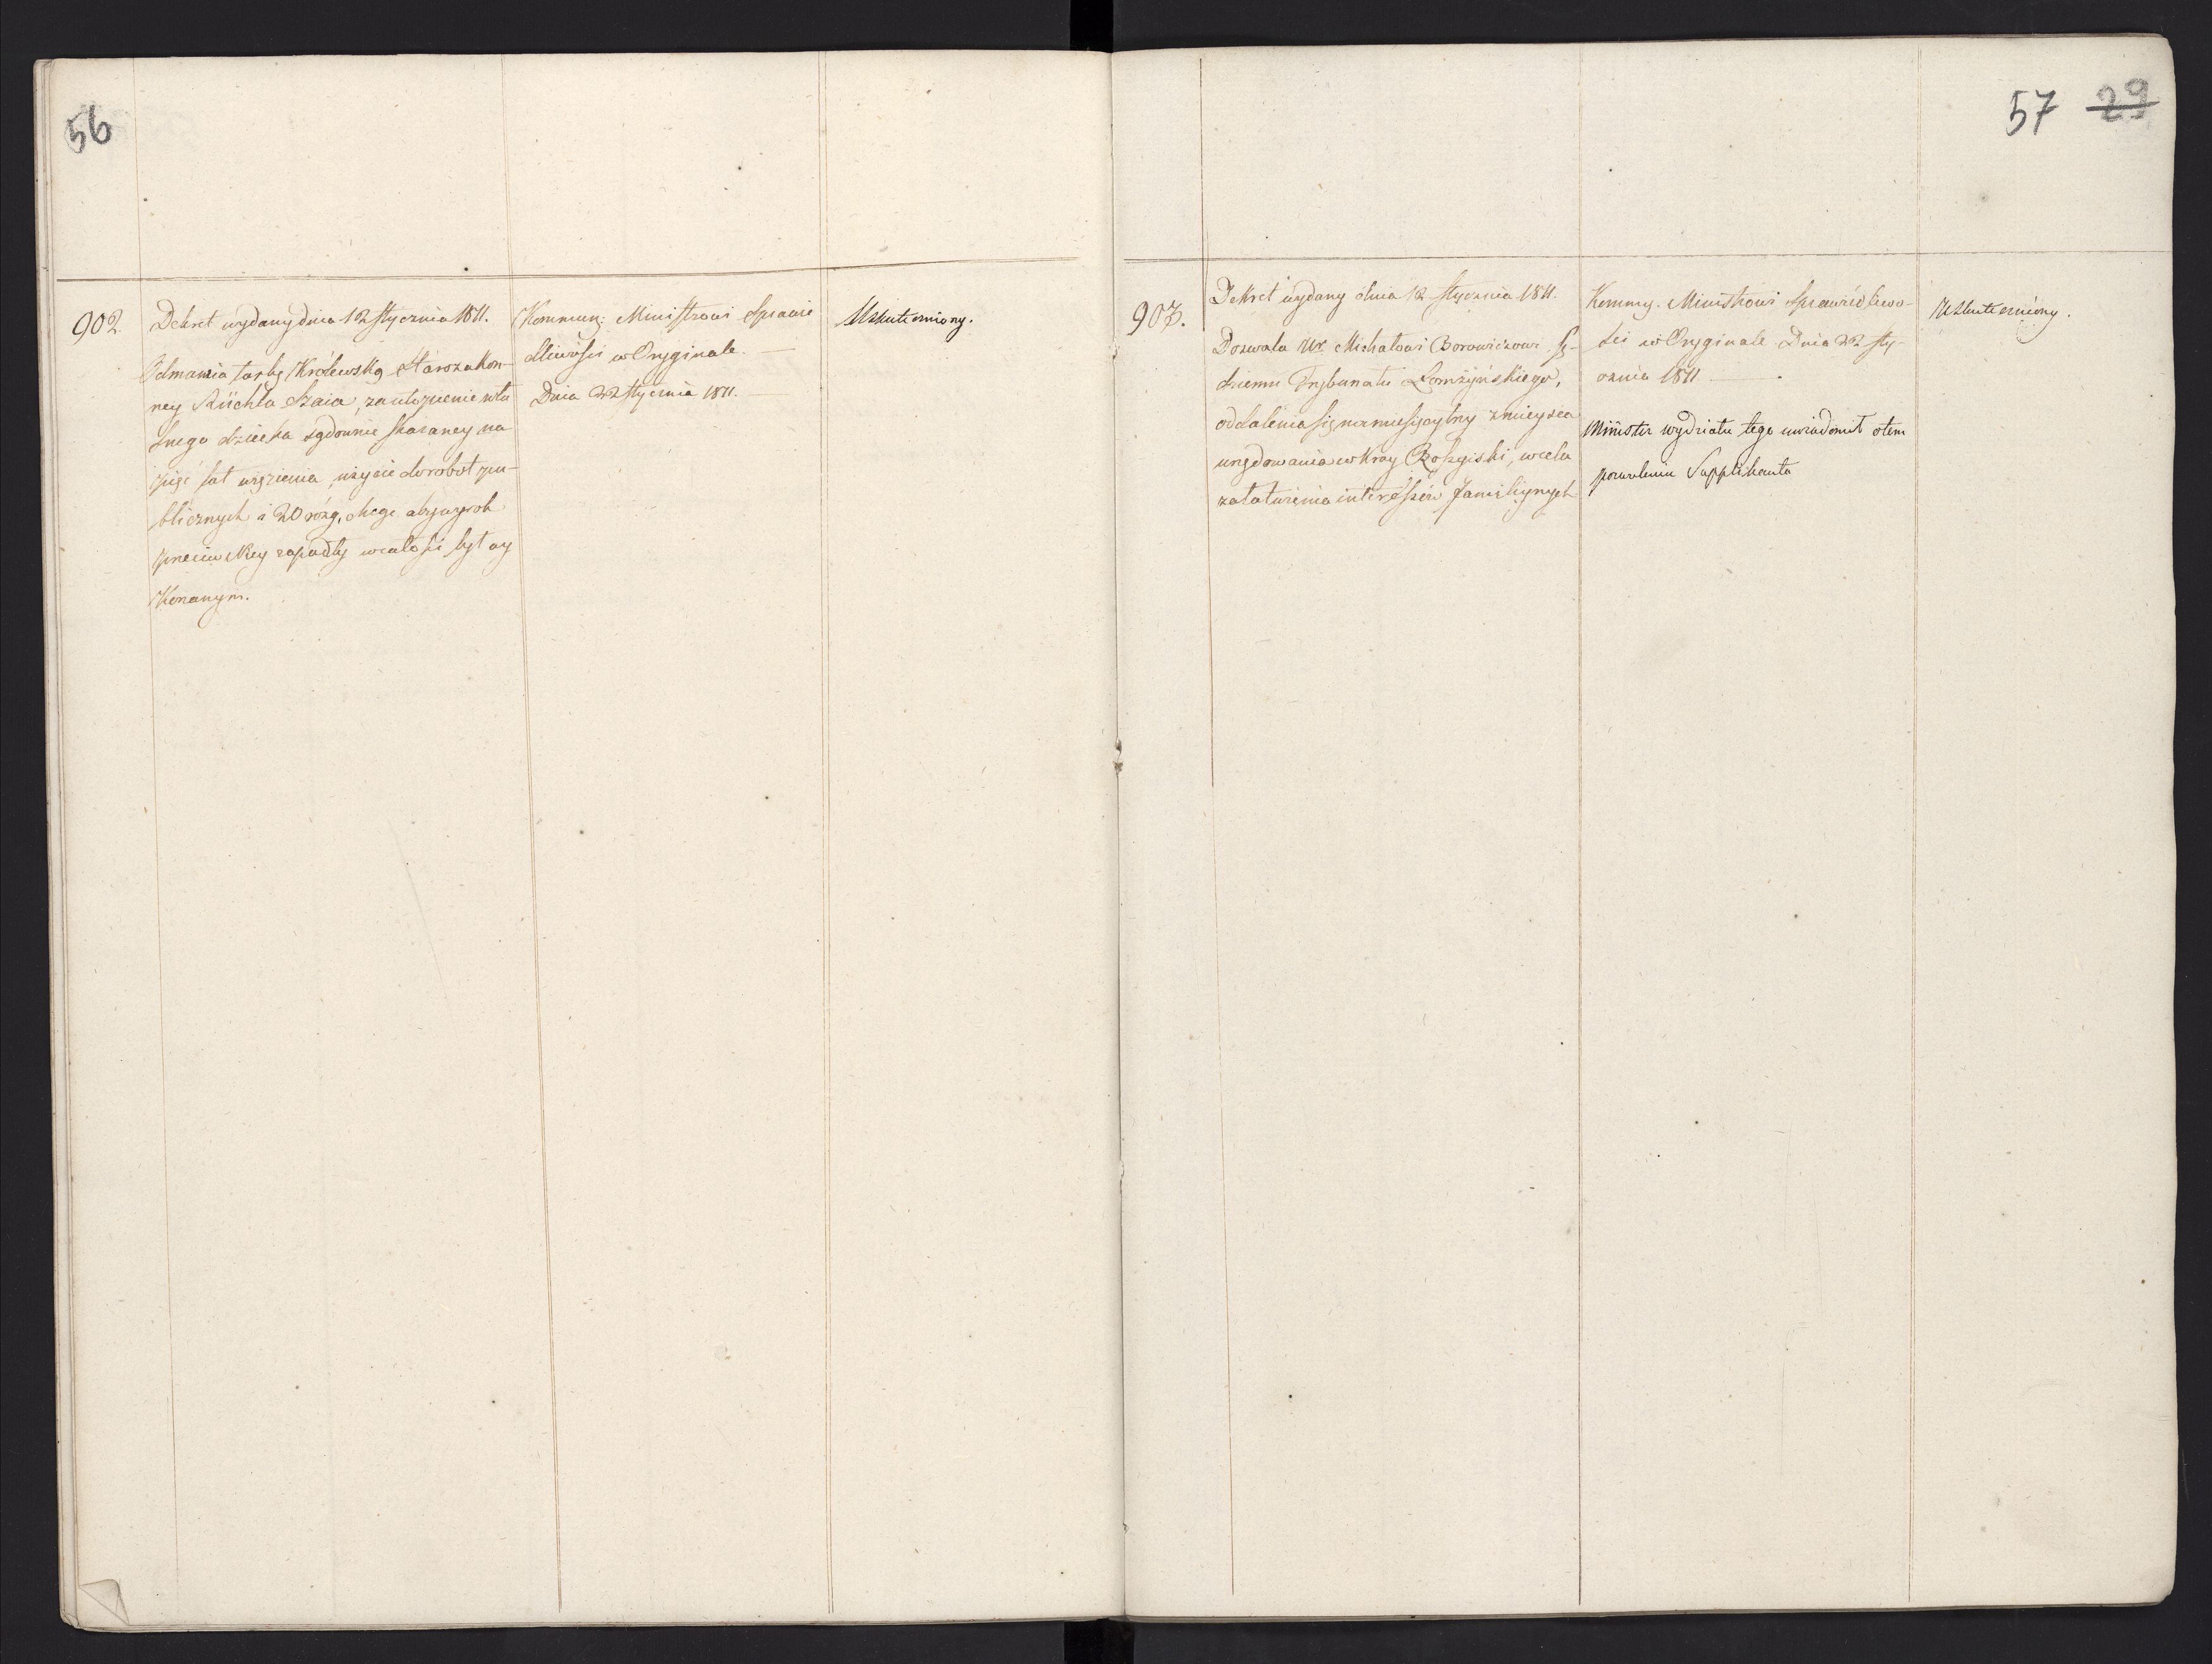 56
902.
Dekret wydany dnia 12 stycznia 1811.
Odmawia łaskę Królewską Starozakon-
ney Rüchla Szaia, za utopienie wła
snego dziecka sądownie skazaney na
pięć lat więzienia, użycie do robot pu-
blicznych i 20 rózg, chcąc aby wyrok
przeciwkey zapadły w całości był wy
Konanym.
Kommun: Ministrowi Sprawie
dliwości w Oryginale. —
Dnia 22 stycznia 1811. —
Uskuteczniony.
57 29
903.
Dekret wydany dnia 12 stycznia 1811.
Dozwala Ur. Michałowi Borowiczowi Sę-
dziemu Trybunału Łomżyńskiego,
oddalenia się na miesiąc z mieysca
urzędowania w Kray Rossyiski, w celu
załatwienia interessów familiynych
Kommu. Ministrowi Sprawiedliwo-
ści w Oryginale Dnia 22 sty-
cznia 1811 —
Minister wydziału tego uwiadomił o tem
pozwoleniu Supplikanta
Uskuteczniony.